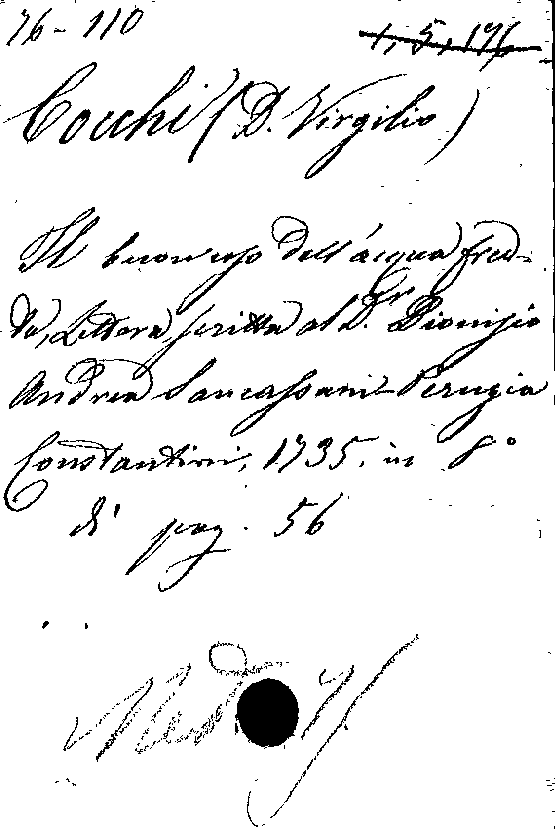 76-110
1, 5, 176
Cocchi (D. Virgilio)
Il buon uso dell'acqua fred-
da, Lettera scritta al D.r Dionisio
Andrea Sancassani - Perugia
Constantini, 1735. in 8°
di pag. 56
Med.